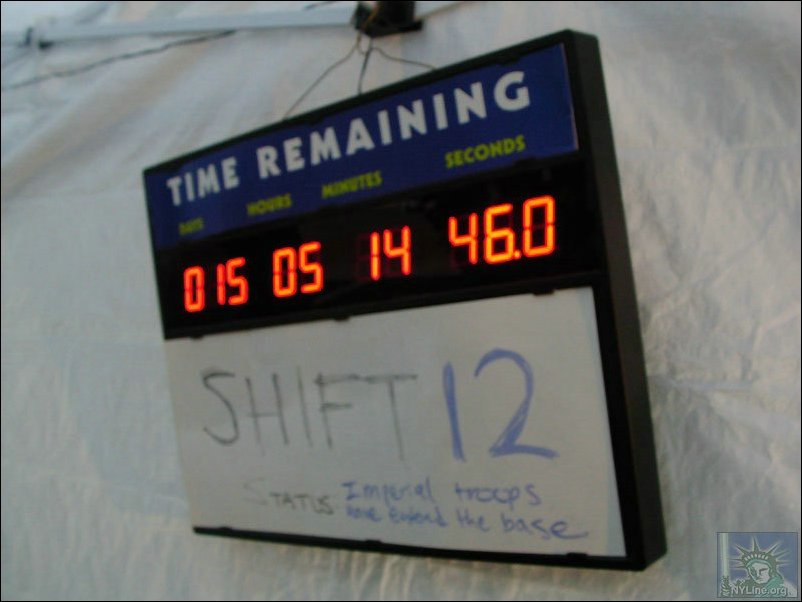 TIME REMAINING
DAYS HOURS MINUTES SECONDS
015 05 14 46.0
SHIFT 12
STATUS: Imperial troops
have entered the base
NYLine.org